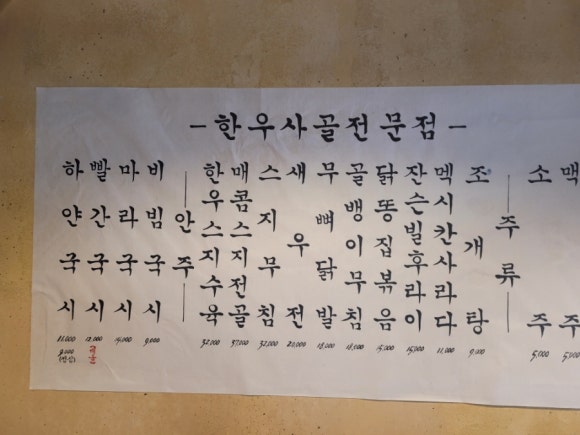 -한우사골전문점-
하얀국시
11,000
9,000
빨간국시
12,000
마라국시
14,000
비빔국시
9,000
안주
한우스지수육
32,000
매콤스지전골
37,000
스지무침
32,000
새우전
20,000
무뼈닭발
18,000
골뱅이무침
18,000
닭똥집볶음
15,000
잔슨빌후라이
15,000
멕시칸사라다
11,000
조개탕
9,000
주류
소주
5,000
맥주
5,000